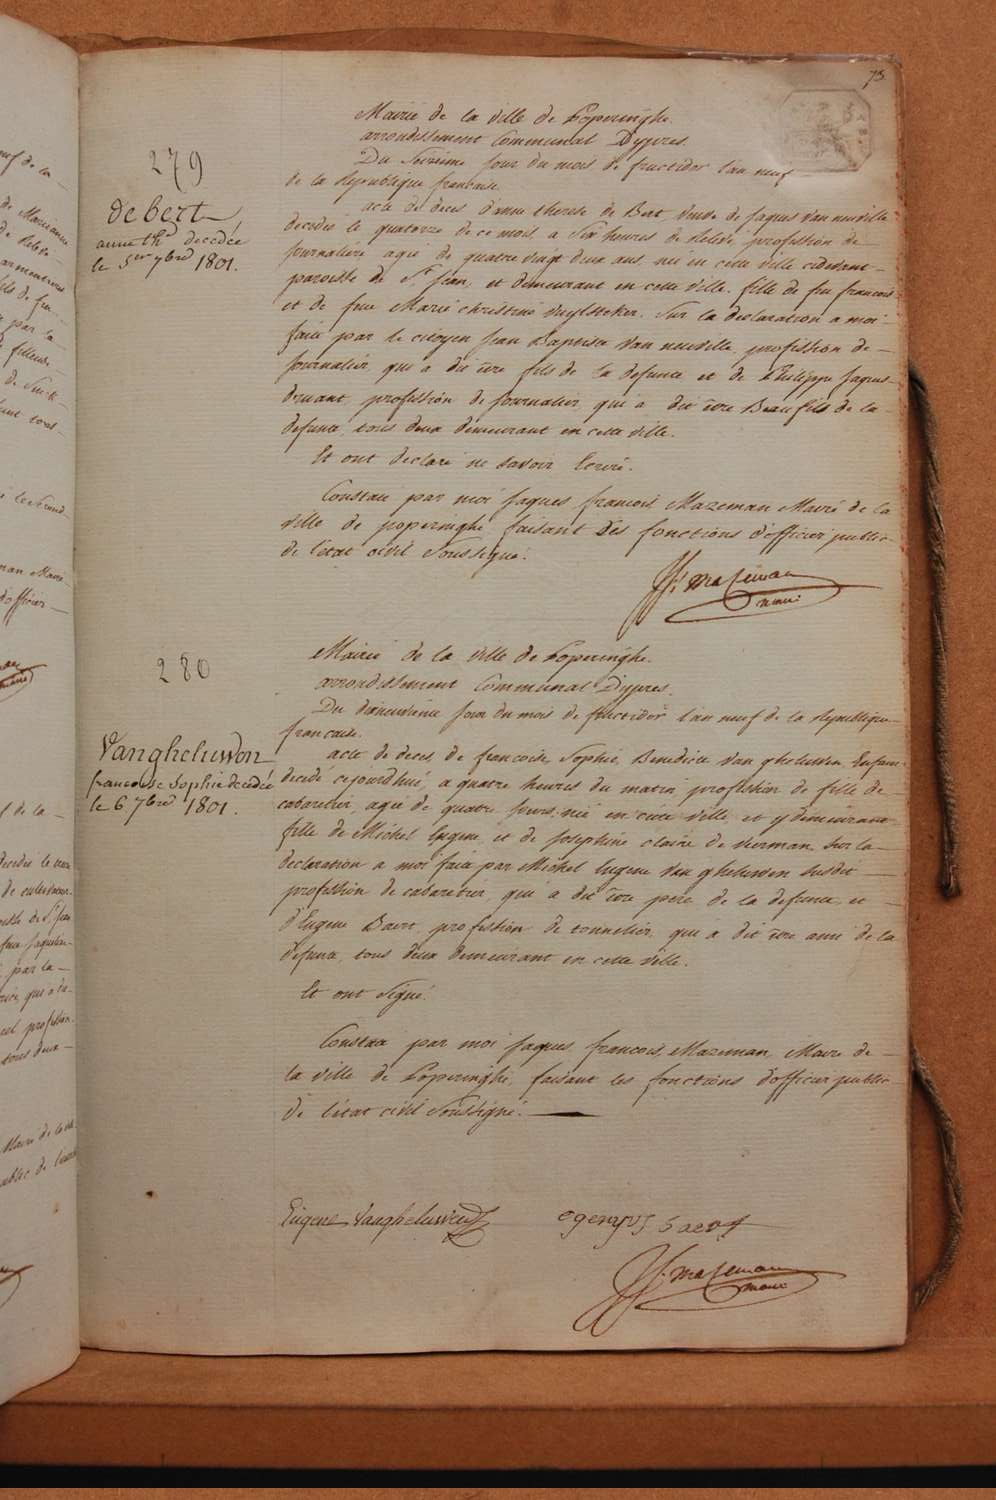 73.
Mairie de la ville de Poperinghe.
arrondissement Communal Dypres.
Du Seizieme jour du mois de fructidor l'an neuf
de la Republique francaise.
279
de bert
anne th. decedée
le 1er 7bre 1801.
acte de deces d'anne therese de Bert veuve de jaques van neuville
decedée le quatorze de ce mois a six heures de relevé, profession de
journaliere agée de quatre vingt deux ans, née en cette ville cidevant
paroisse de St. Jean, et demeurant en cette ville. fille de feu francois
et de feue Marie christine Vuylsteker. Sur la declaration a moi
faite par le citoyen jean Baptiste Van neuville, profession de
journalier, qui a dit être fils de la defunte et de Philippe jaques
druant, profession de journalier, qui a dit être Beau fils de la
defunte, tous deux demeurant en cette ville.
Et ont declaré ne savoir Ecrire.
Constaté par moi jaques francois Mazeman Maire de la
ville de poperinghe, faisant Les fonctions d'officier public
de l'état civil Soussigné.
JF. Mazeman
maire
280
Mairie de la ville de Poperinghe.
arrondissement Communal D'ypres.
Du dixneuvieme jour du mois de fructidor l'an neuf de la Republique
francaise.
Vangheluwen
francoise Sophie decedée
le 6 7bre 1801.
acte de deces, de francoise, Sophie, Benedicte Van gheluwen Enfant
decedé cejourdhui a quatre heures du matin profession de fille de
cabaretier, agée de quatre jours, née en cette ville et y demeurant
fille de Michel Eugene, et de Josephine claire de herman, Sur la
declaration a moi faite par Michel Eugene Van gheluwen Susdit
profession de cabaretier, qui a dit être pere de la defunte, et
d'Eugene Baert, profession de tonnelier, qui a dit être ami de la
defunte, tous deux demeurant en cette ville.
Et ont Signé.
Constaté par moi jaques francois Mazeman, Maire de
la ville de Poperinghe, faisant les fonctions d'officier public
de l'état civil Soussigné.
Eugene Vangheluwen
Baert
JF. Mazeman
maire